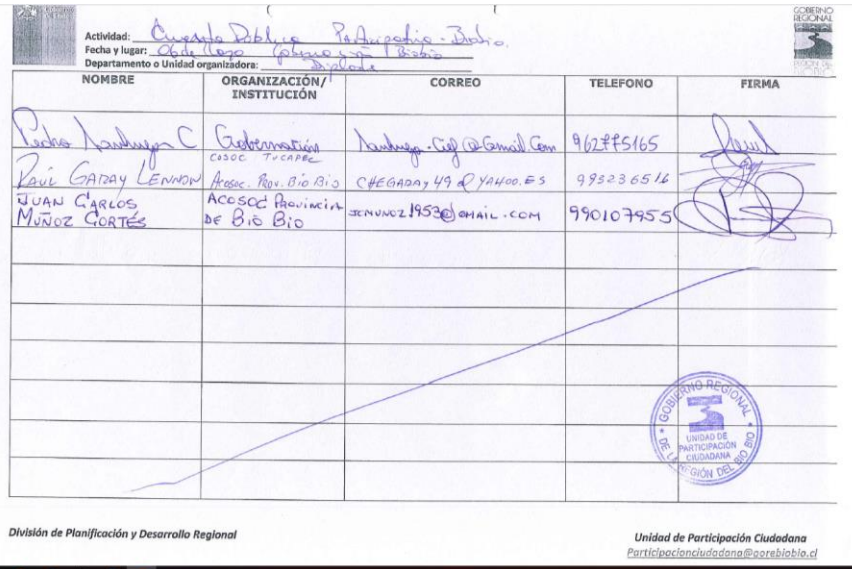 GOBIERNO
REGIONAL
Actividad: Cuenta Pública Participativa - Biobío.
Fecha y lugar: 06 de Mayo Gobernación Biobío
Departamento o Unidad organizadora: Diplade
NOMBRE ORGANIZACIÓN/ INSTITUCIÓN CORREO TELEFONO FIRMA
Pedro C Gobernación 962775165
COSOC TUCAPEL
RAÚL GARAY LENNON Acosoc. Prov. Bio Bio CHEGARAY49@YAHOO.ES 993236516
JUAN CARLOS ACOSOC PROVINCIA JCMUNOZ1953@GMAIL.COM 990107955
MUÑOZ CORTÉS DE BIO BIO
GOBIERNO REGIONAL
UNIDAD DE
PARTICIPACIÓN
CIUDADANA
DE LA REGIÓN DEL BIO BIO
División de Planificación y Desarrollo Regional
Unidad de Participación Ciudadana
Participacionciudadana@gorebiobio.cl